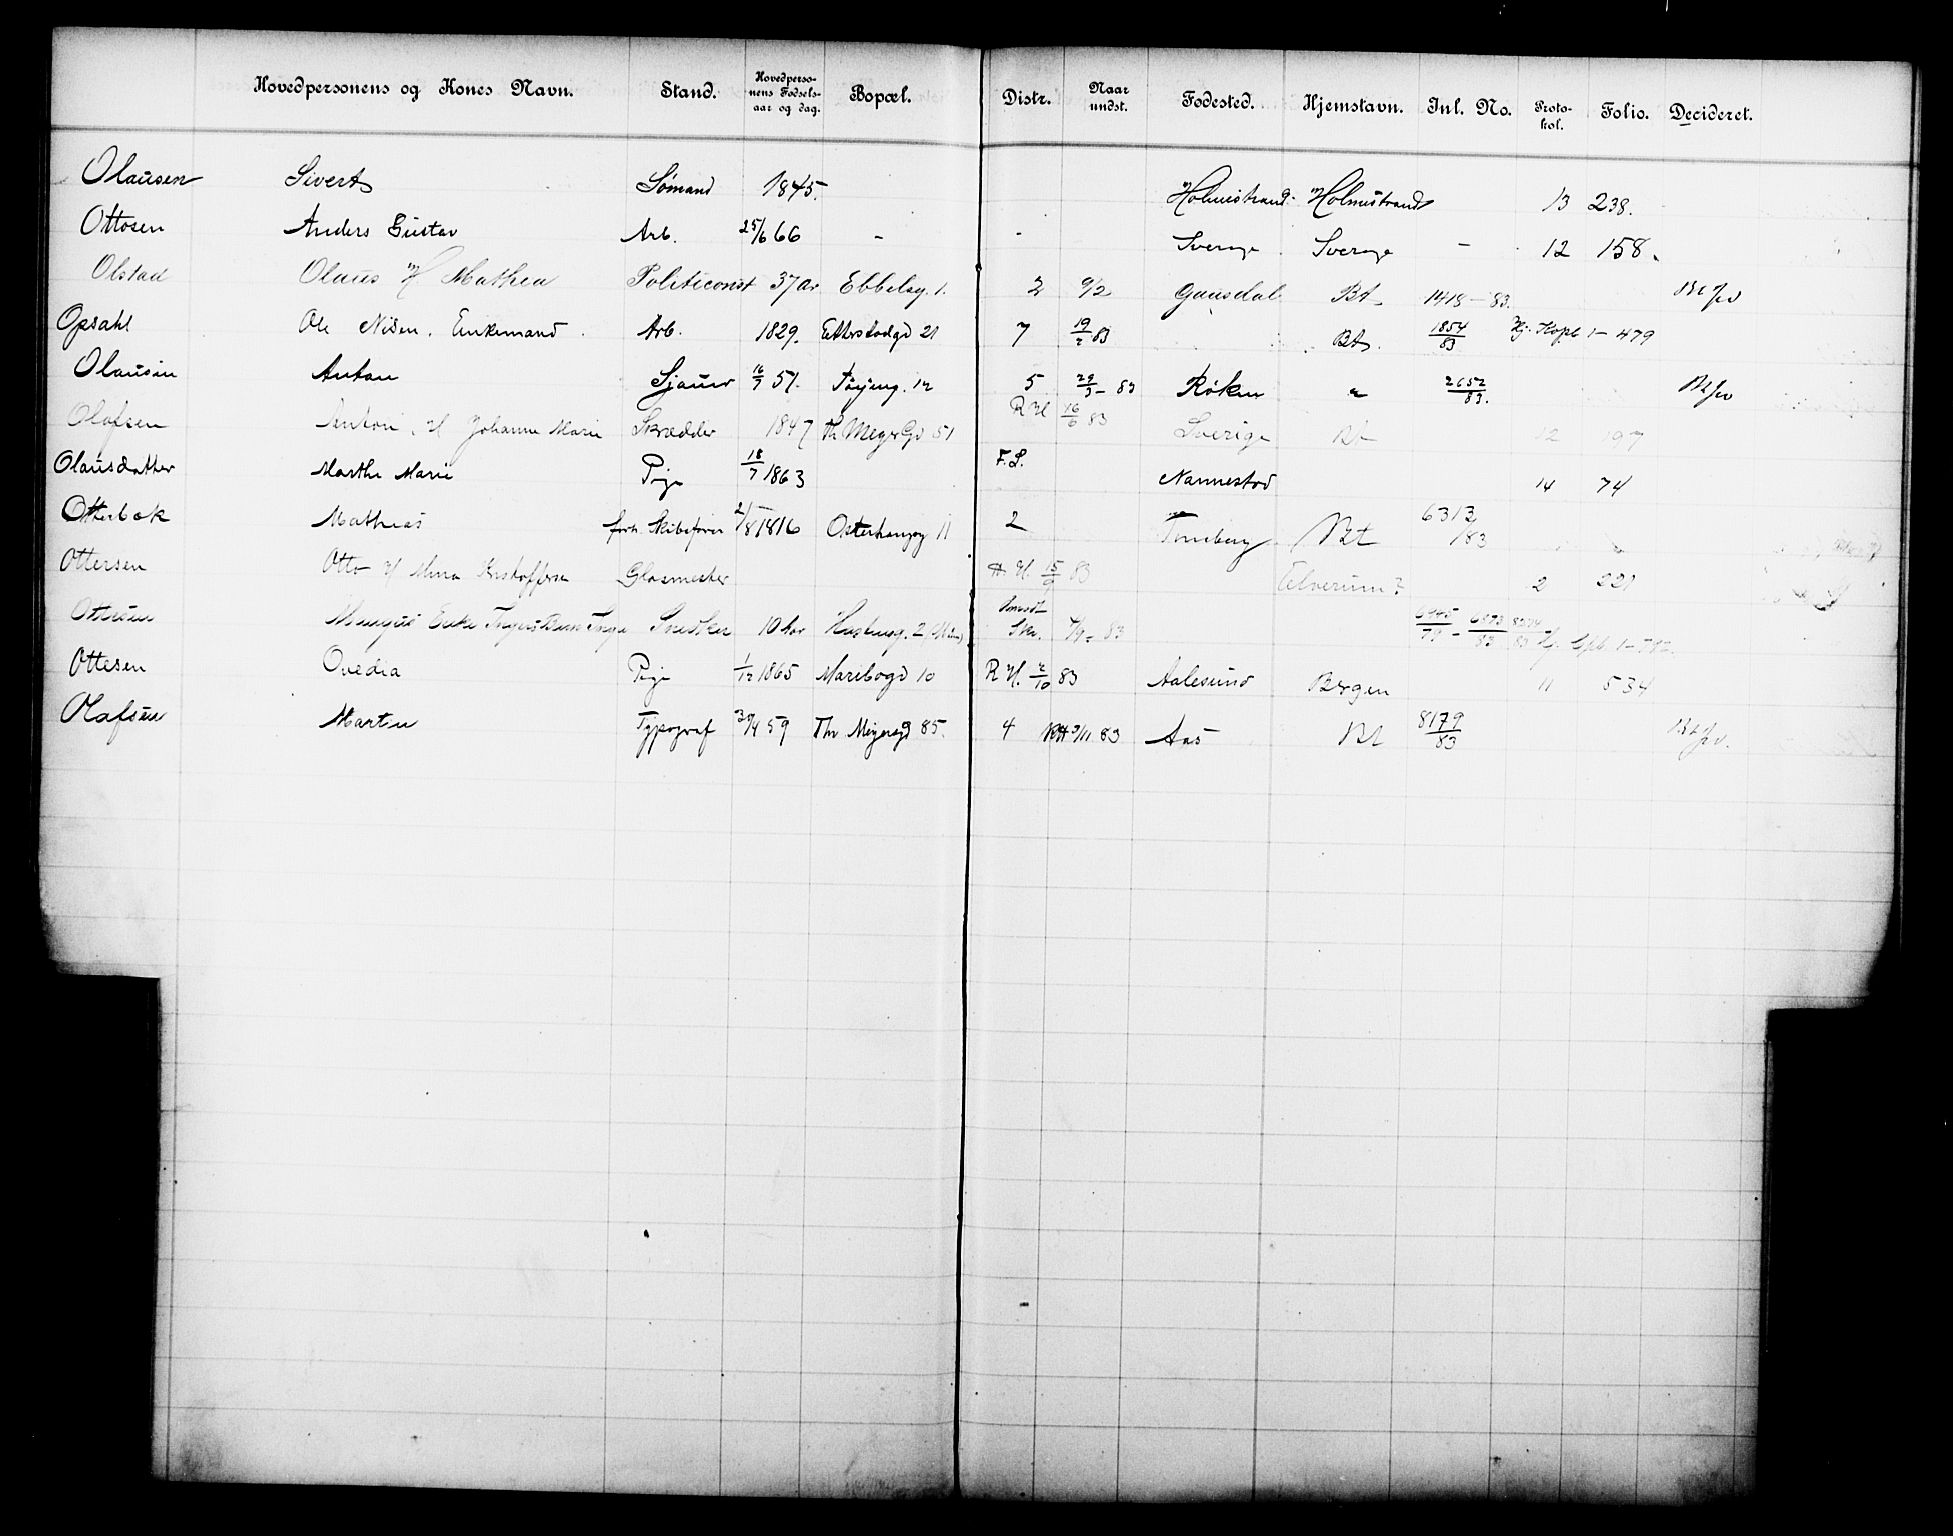 Hovedpersonens og Kones Navn. Stand. Hovedpersonens Fødselsaar og dag. Bopæl. Distr. Naar undst. Fødested. Hjemstavn. Inl. No. Protokol. Folio. Decideret.
Olausen Sivert Sömand 1845. Holmestrand Holmestrand 13 238.
Ottosen Anders Gustav Arb. 25/6 66 - - Sverige Sverige - 12 158.
Olstad Olaus H Mathea Politiconst 37 ar Ebbelsg. 1. 2 9/2 Gausdal Bt 1418-83.
Opsahl Ole Nilsen, Enkemand. Arb. 1829. Etterstadgd 21 7 19/2 83 Bt. 1854/83 Hj. Kopb 1-479
Olausen Anton Sjauer 16/7 51. Töyeng. 12 5 29/3-83 Röken " 2652/83.
Olafsen Anton, H Johanne Marie Skrædder 1847 Th Meyers Gd 51 R H 16/6 83 Sverige Bt 12 197
Olausdatter Marthe Marie Pige 18/7 1863 F.S. Nannestad 14 74
Otterbæk Mathias forh. Skibsfører 2/8 1816 Osterhausg 11 2 Tonsberg Bt 6313/83
Ottersen Otto H Mina Kristoffersen Glasmester R. H. 15/9 83 Elverum? 2 221
Snedker 83
Ottesen Ovedia Pige 1/12 1865 Maribogd 10 R H. 2/10 83 Aalesund Bergen 11 534
Olafsen Martin Typograf 30/4 59 Thv Meyersgd 85. 4 RH 3/11 83 Aas Bt 8179/83